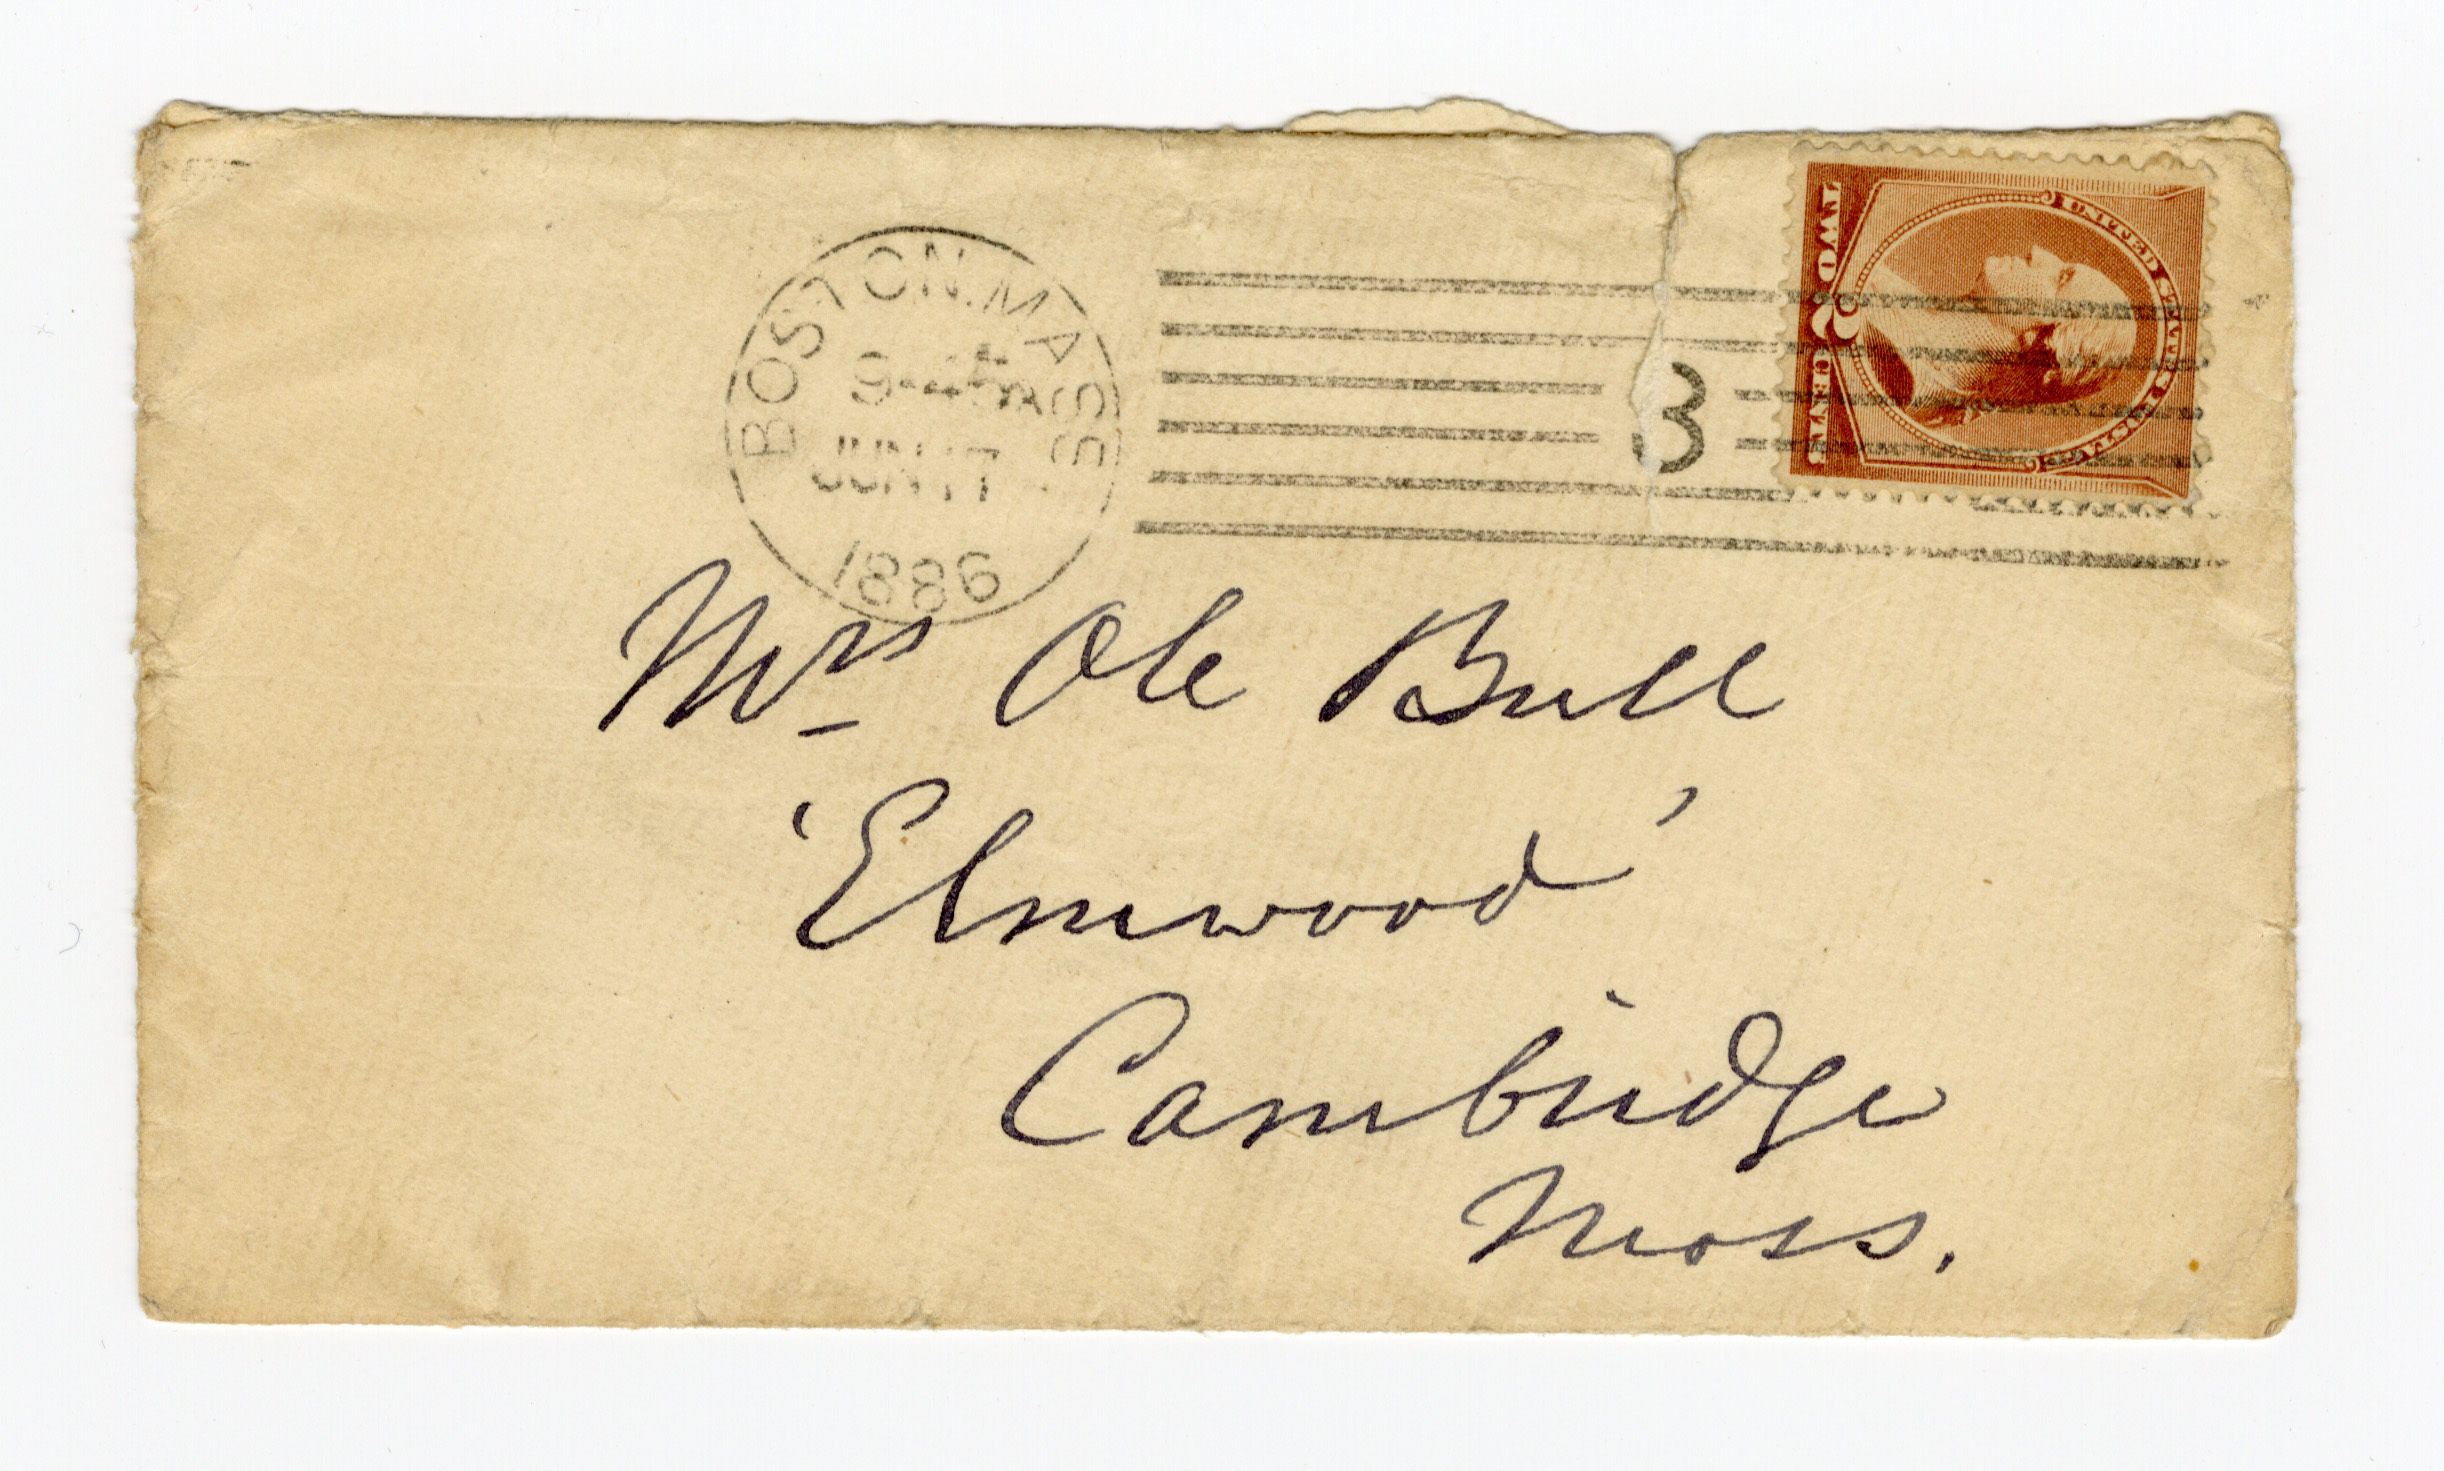 BOSTON. MASS.
9-45A
JUN 17
1886
3
UNITED STATES POSTAGE
TWO 2 CENTS
Mrs Ole Bull
'Elmwood'
Cambridge
Mass.